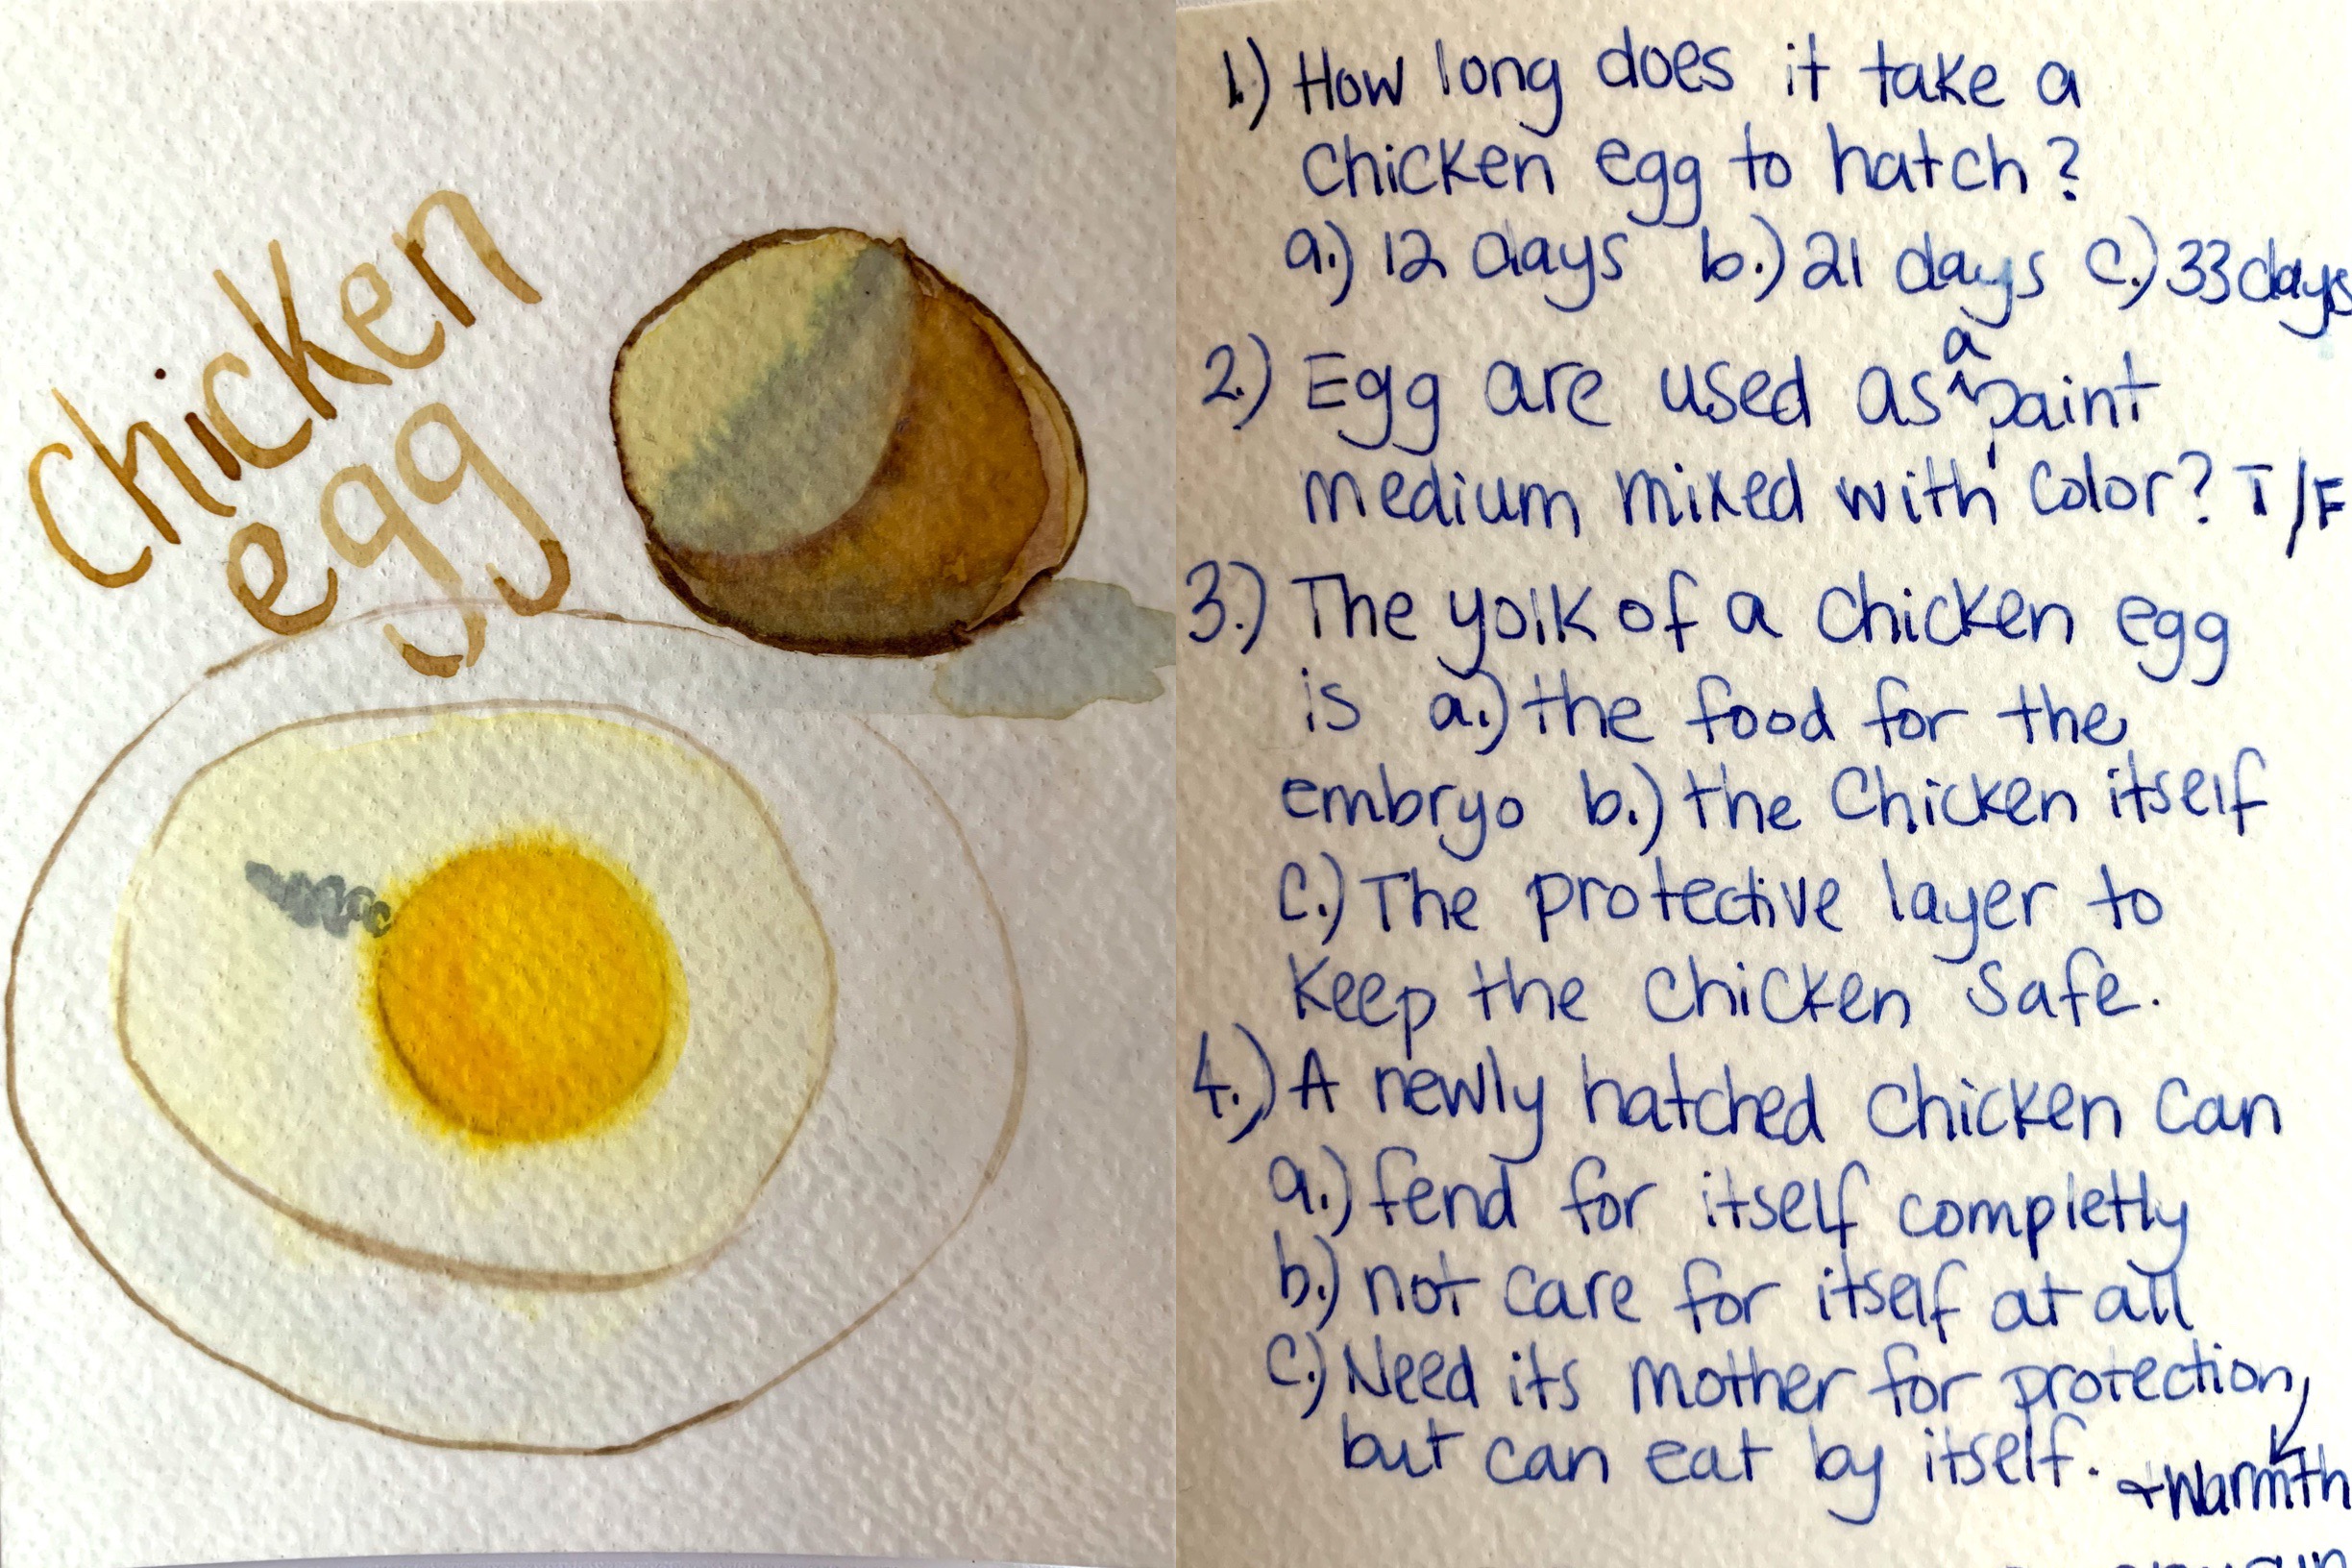 Chicken
egg
1.) How long does it take a
chicken egg to hatch?
a.) 12 days b.) 21 days c.) 33 days
2.) Egg are used as a paint
medium mixed with color? T/F
3.) The yolk of a chicken egg
is a.) the food for the
embryo b.) the Chicken itself
c.) The protective layer to
keep the chicken safe.
4.) A newly hatched chicken can
a.) fend for itself completly
b.) not care for itself at all
c.) Need its mother for protection,
but can eat by itself. + warmth